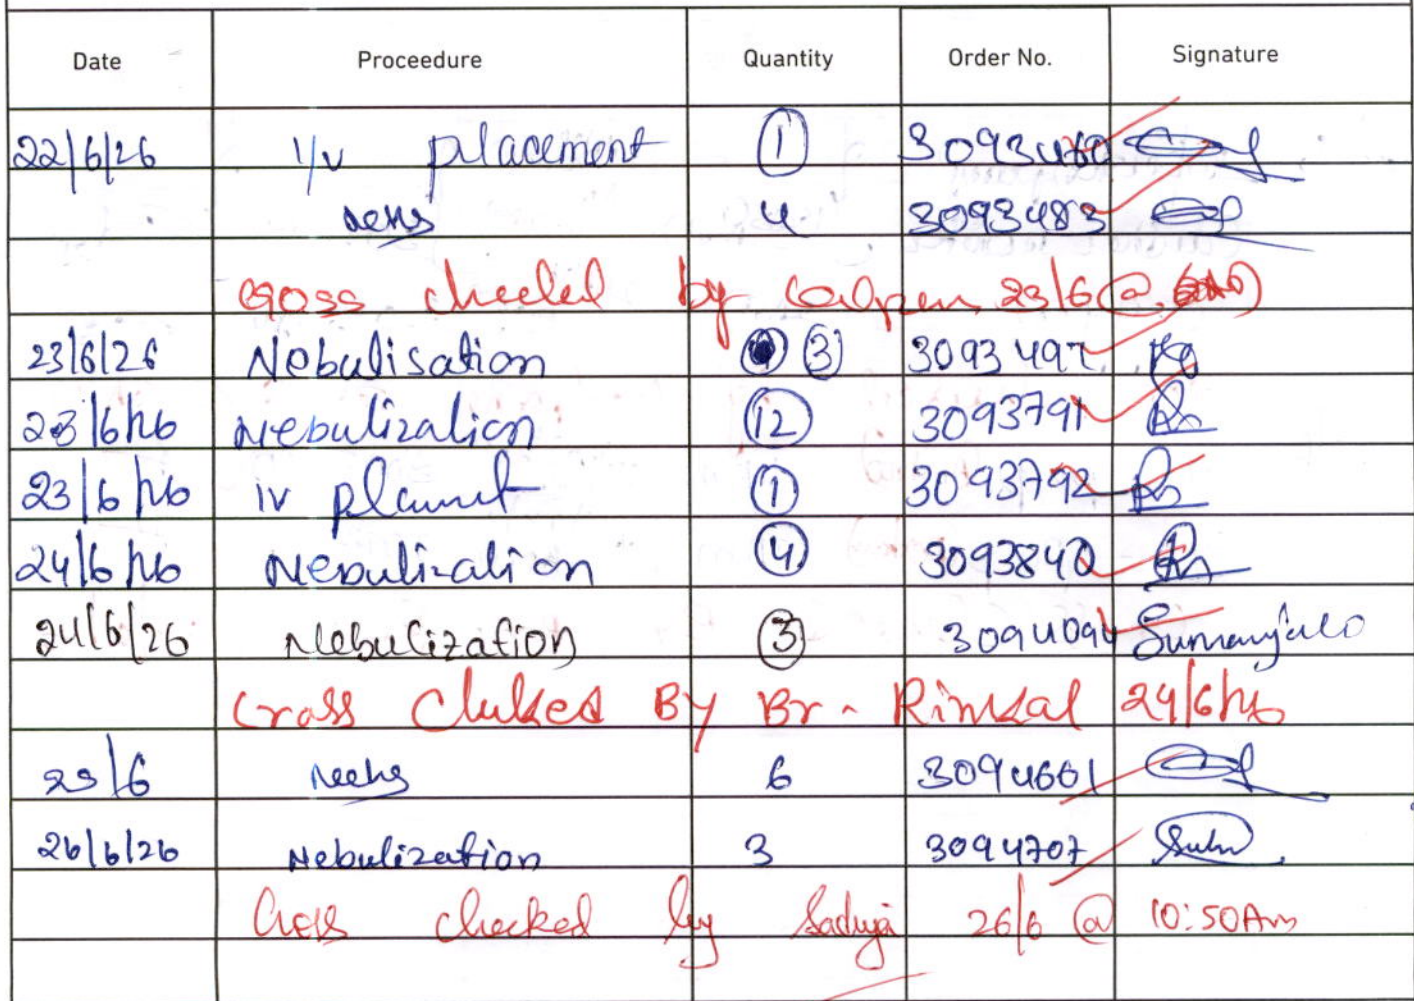 Date Proceedure Quantity Order No. Signature
22/6/26 I/v placement 1 3093460
nebs 4 3093483
cross checked by 23/6 @
23/6/26 Nebulisation 3 3093497
23/6/26 Nebulization 12 3093791
23/6/26 iv 1 3093792
24/6/26 Nebulization 4 3093840
24/6/26 Nebulization 3 3094094
Cross By Br. Rimsal 24/6/26
25/6 nebs 6 3094661
26/6/26 Nebulization 3 3094707
Cross checked by 26/6 @ 10:50Am